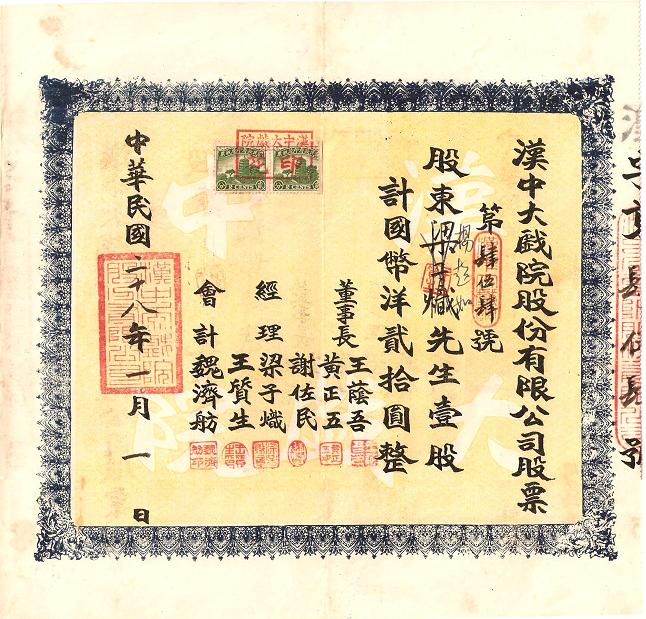 漢中大戲院股份有限公司股票
第肆伍肆號
股東梁子熾先生壹股
楊起如
計國幣洋貳拾圓整
董事長王蔭吾
黃正五
謝佐民
經理梁子熾
王質生
會計魏濟舫
中華民國二十八年一月一日
漢中大戲院
2 CENTS 2 CENTS